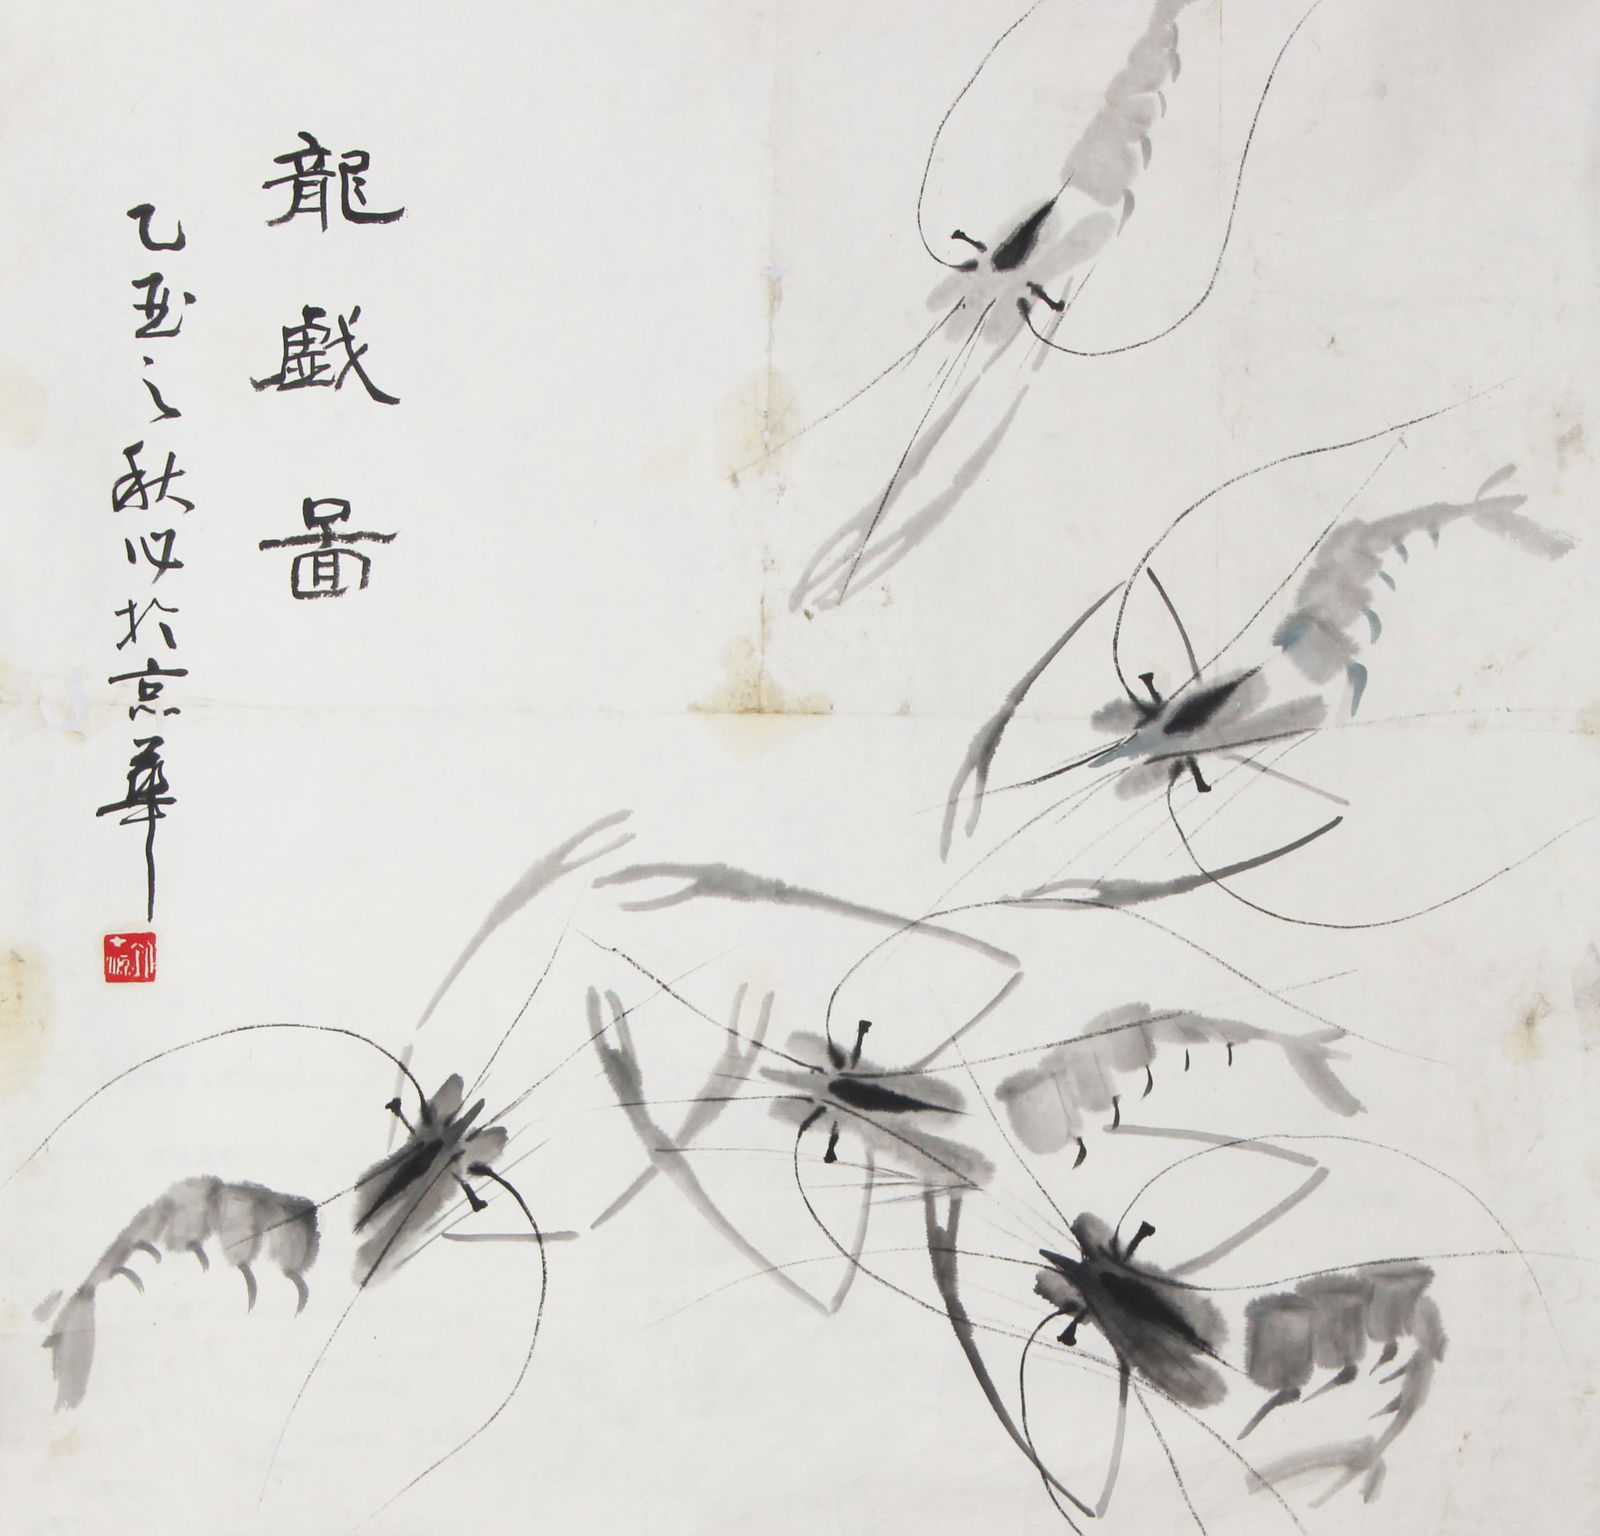 龍戲圖
乙丑之秋必於京華